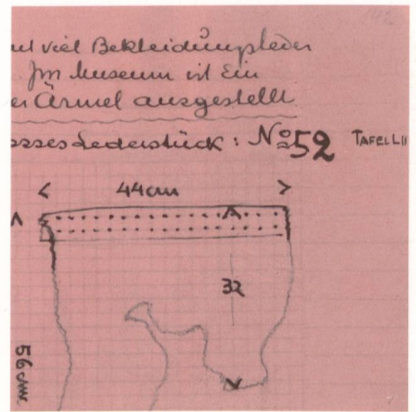 viel Bekleidungsleder
Im Museum ist Ein
er Ärmel ausgestellt
sses Lederstück: No 52 TAFEL LII
44cm
32
56 cm